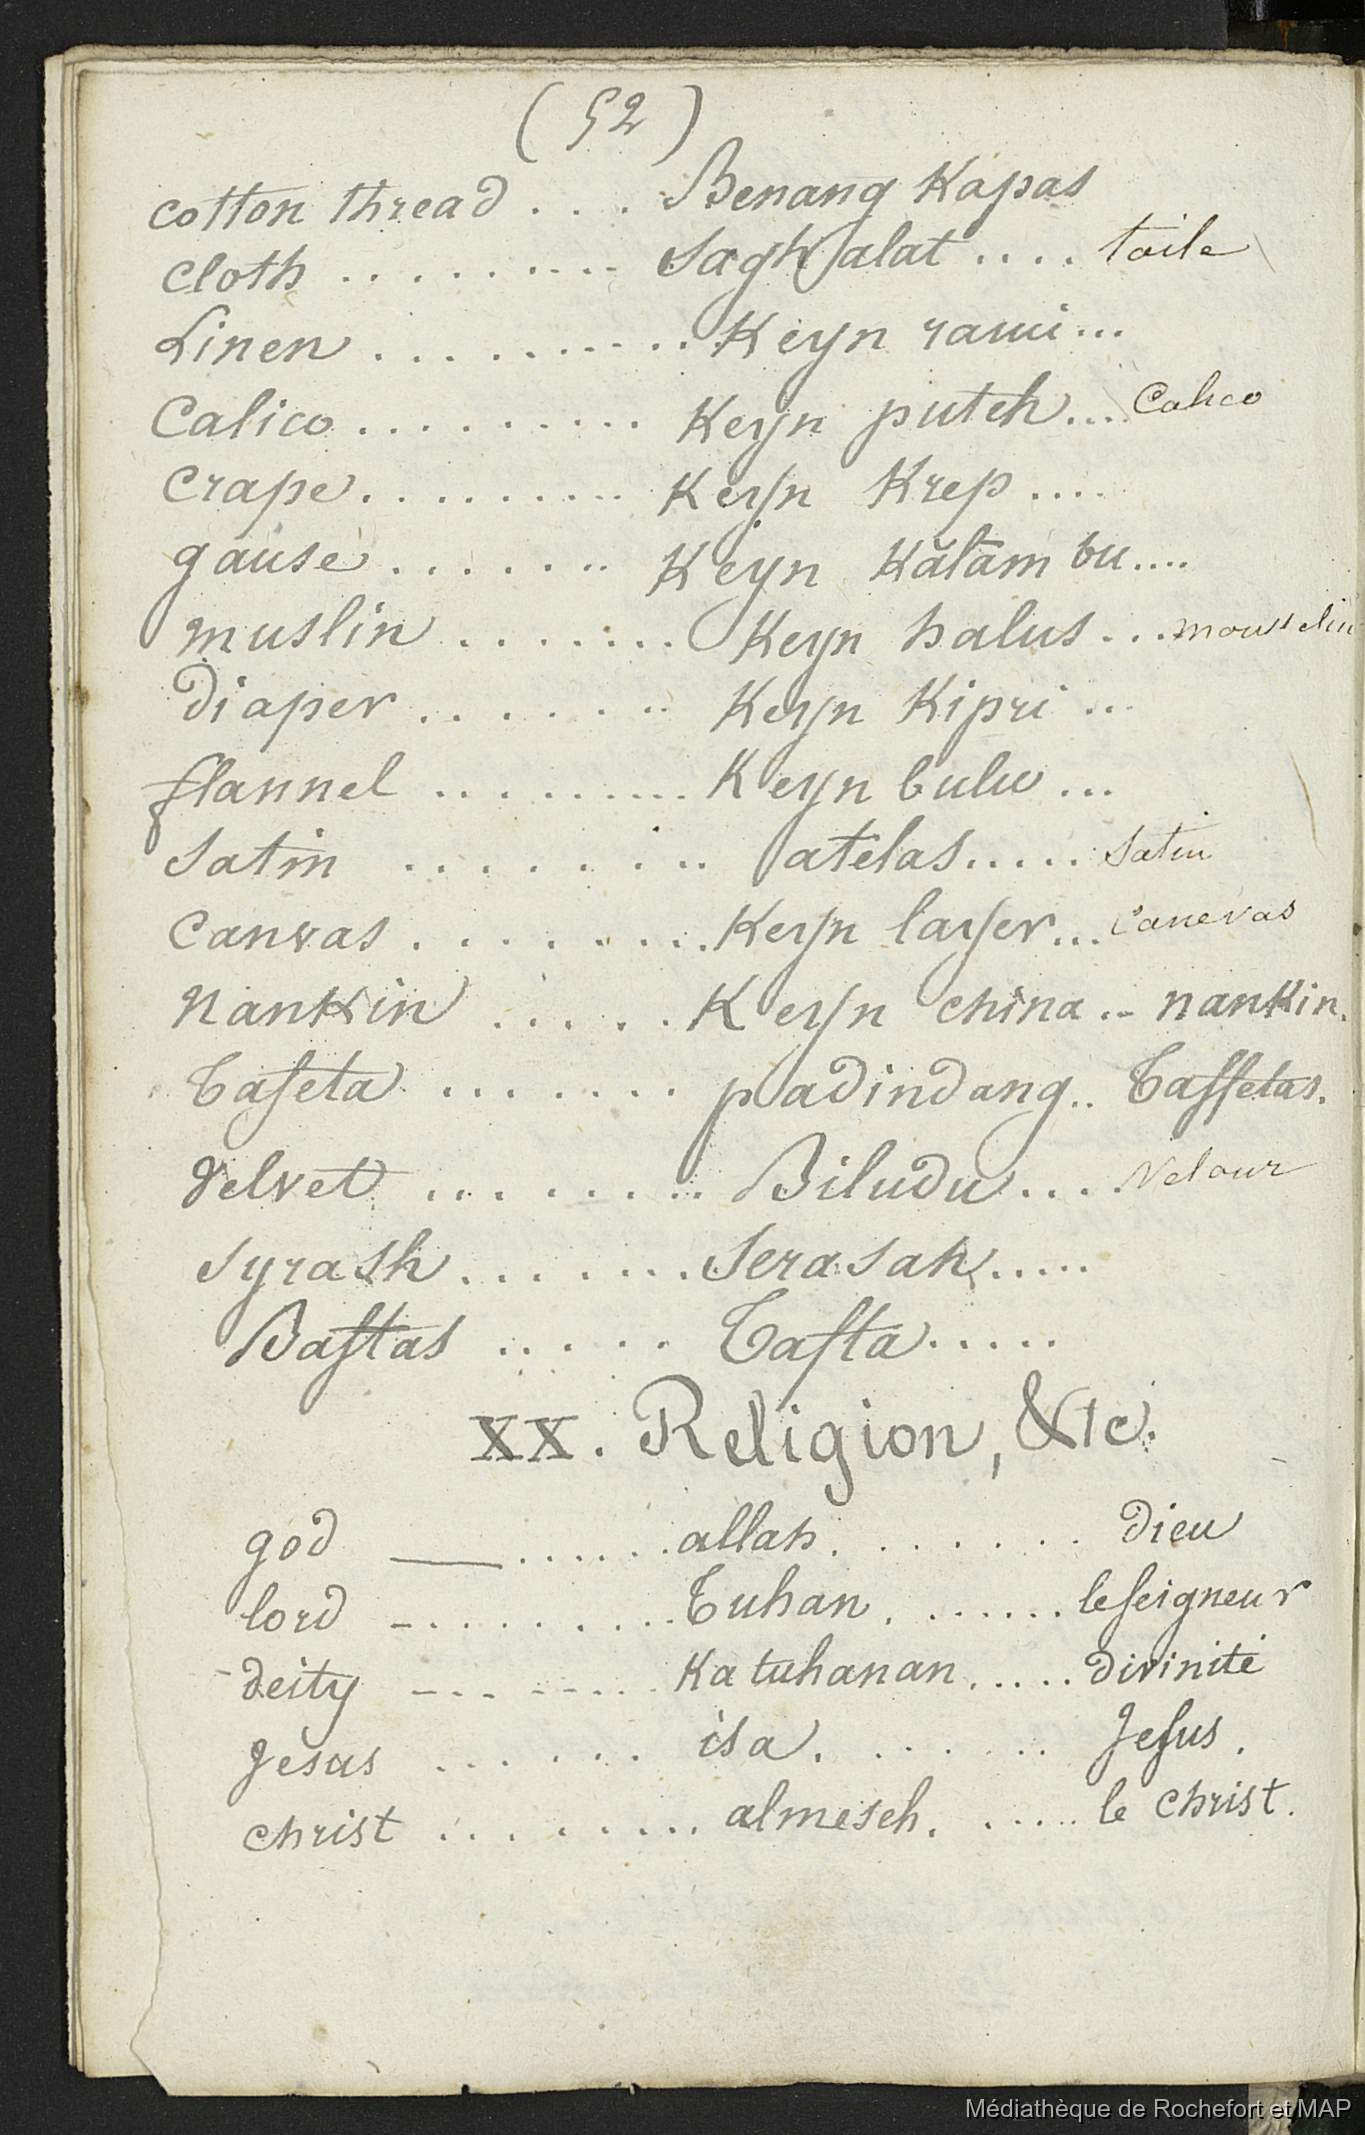 ( 52 )
cotton thread . . . . Benang Kapas
Cloth . . . . . . . . . Saghalat . . . . toile
Linen . . . . . . . . . . . Keyn rami ...
Calico . . . . . . . . . . Keyn puteh .... Calico
Crape . . . . . . . . . Keyn Krep ....
gause . . . . . . . Keyn Kălam bu ....
muslin . . . . . . . . Keyn halus ... mousselin
Diaper . . . . . . . Keyn Kipri ...
flannel . . . . . . . . . Keyn bulu ...
Satin . . . . . . . . atelas ..... Satin
Canvas . . . . . . . . . Keyn layer ... Canevas
Nankin . . . . . Keyn China .. nankin.
Tafeta . . . . . . . padindang .. Taffetas.
Velvet . . . . . . . . Biludu .... Velour
Syrash . . . . . . . . Serasah .....
Baftas . . . . . Tafta .....
XX. Religion, &tc.
god —— ...... allah. . . . . . . . Dieu
lord - . . . . . . . . Tuhan. ...... le seigneur
- deity - - . . - - . . . Katuhanan. .... divinité
Jesus . . . . . . isa. . . . . . . Jesus.
Christ . . . . . . . . . almeseh. ..... le Christ.
Médiathèque de Rochefort et MAP